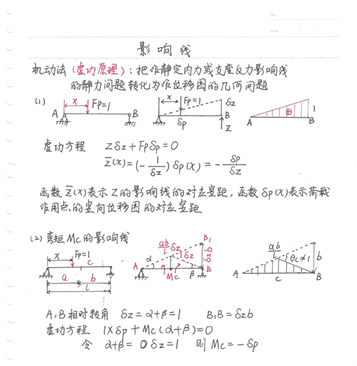 影响线
机动法(虚功原理):把作静定内力或支座反力影响线
的静力问题转化为作位移图的几何问题
(1)
x Fp=1 A B
x Fp=1 δz δp B Z
A ⊕ 1 B
虚功方程 Zδz+Fpδp=0
Z̄(x)=(-1/δz)δp(x)=-δp/δz
函数Z̄(x)表示Z的影响线的对应竖距,函数δp(x)表示荷载
作用点的竖向位移图的对应竖距
(2)弯矩Mc的影响线
x Fp=1 c a b L
ab/L δz B₁ δz α β Mc B δzb
A ab/L θc≠1 b B
A,B相对转角 δz=α+β=1 B₁B=δzb
虚功方程 1×δp+Mc(α+β)=0
令 α+β=δz=1 则Mc=-δp